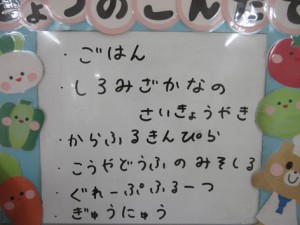 ょうのこんだて
・ごはん
・しろみざかなの
さいきょうやき
・からふるきんぴら
・こうやどうふのみそしる
・ぐれーぷふるーつ
・ぎゅうにゅう